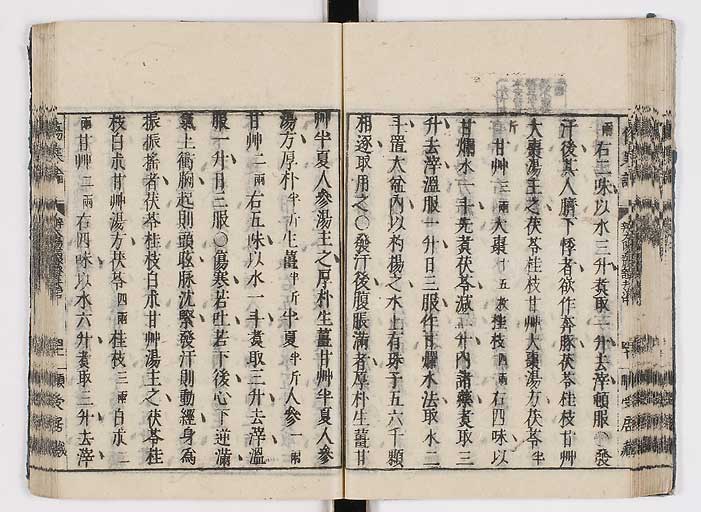 兩右二味以水三升煑取一升去滓頓服○發
汗後其人臍下悸者欲作奔豚茯苓桂枝甘艸
大棗湯主之茯苓桂枝甘艸大棗湯方茯苓半
斤甘艸二兩大棗十五枚桂枝四兩右四味以
甘爛水一斗先煑茯苓減二升內諸藥煑取三
升去滓溫服一升日三服作甘爛水法取水二
斗置大盆內以杓揚之水上有珠子五六千顆
相逐取用之○發汗後腹脹滿者厚朴生薑甘
艸半夏人參湯主之厚朴生薑甘艸半夏人參
湯方厚朴半斤生薑半斤半夏半斤人參一兩
甘艸二兩右五味以水一斗煑取三升去滓溫
服一升日三服○傷寒若吐若下後心下逆滿
氣上衝胸起則頭眩脉沈緊發汗則動經身爲
振振搖者茯苓桂枝白朮甘艸湯主之茯苓桂
枝白朮甘艸湯方茯苓四兩桂枝三兩白朮二
兩甘艸二兩右四味以水六升煑取三升去滓